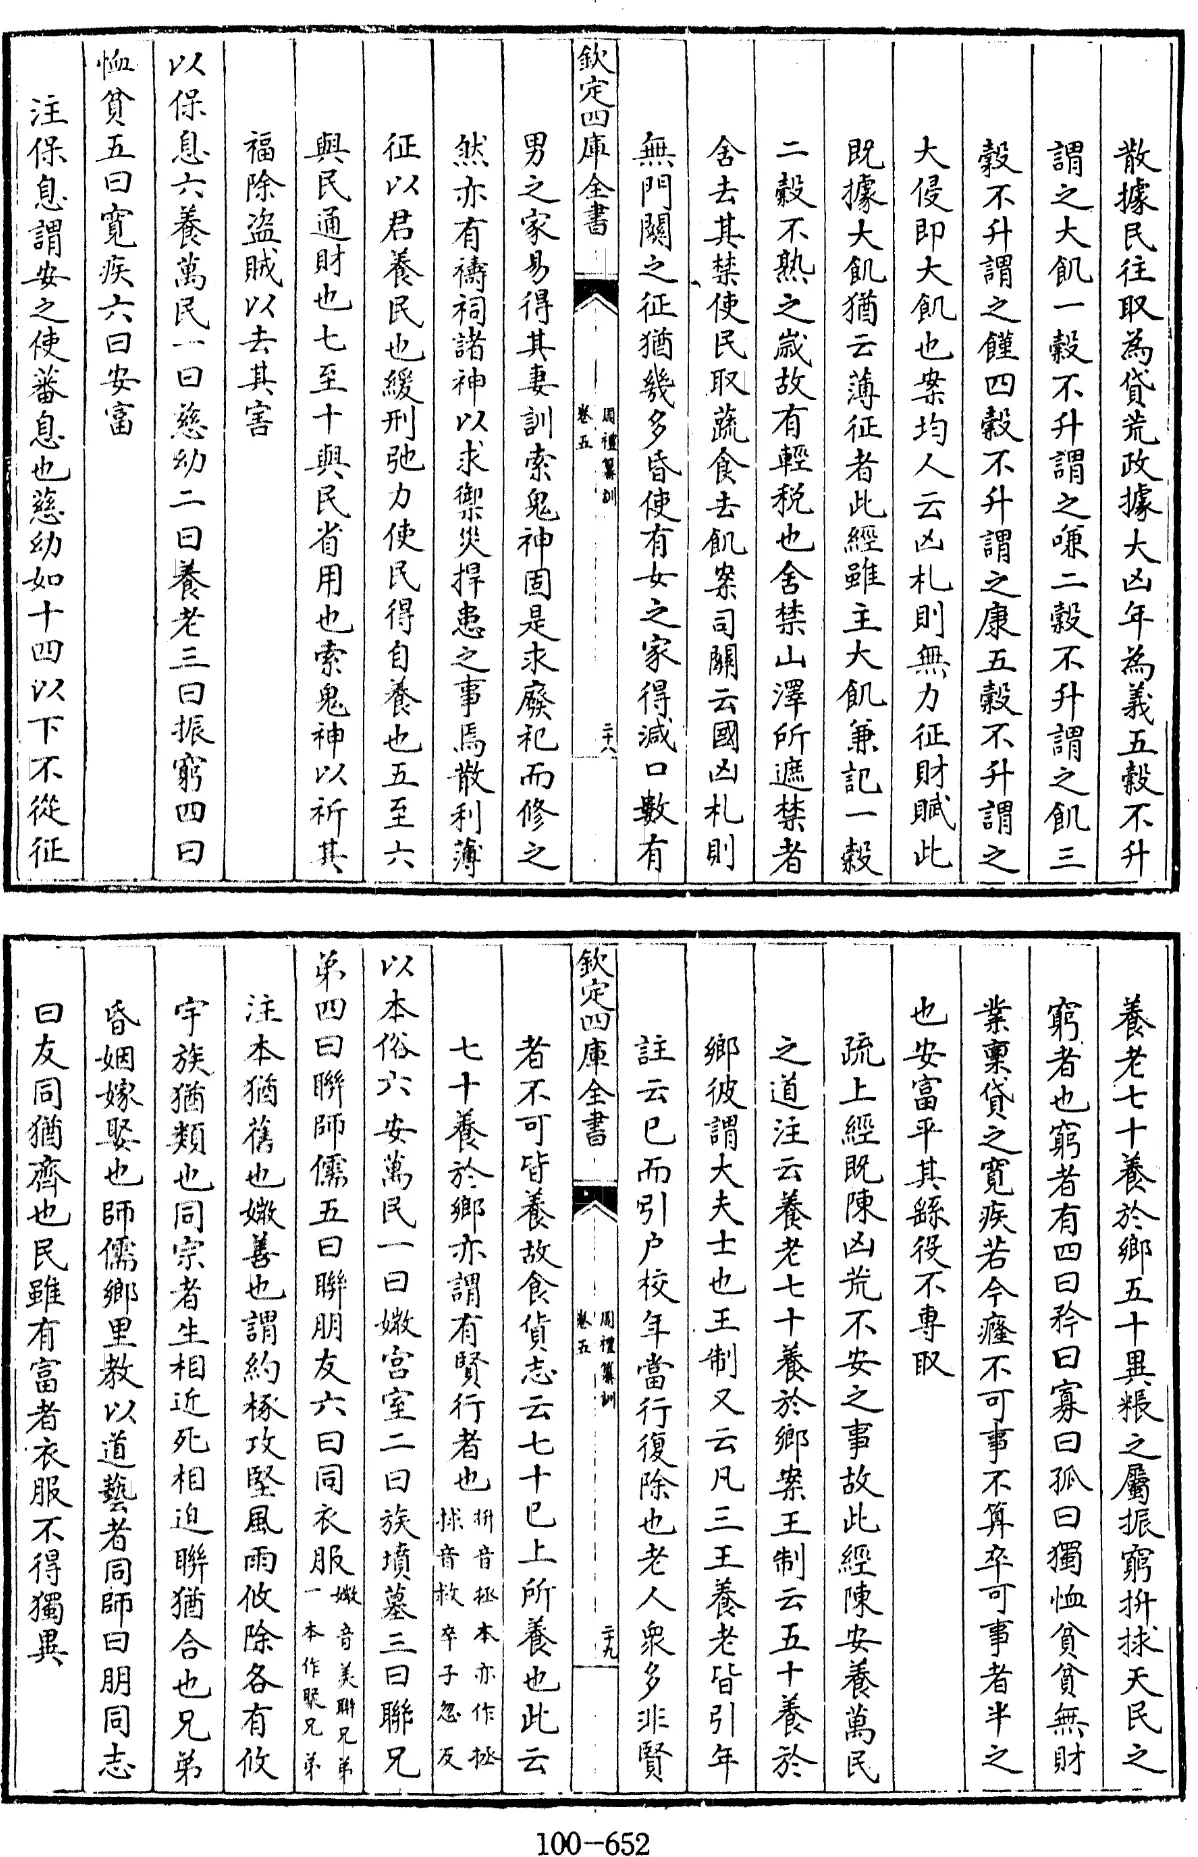 散據民往取為貸荒政據大凶年為義五穀不升
謂之大飢一穀不升謂之嗛二穀不升謂之飢三
穀不升謂之饉四穀不升謂之康五穀不升謂之
大侵即大飢也案均人云凶札則無力征財賦此
既據大飢猶云薄征者此經雖主大飢兼記一穀
二穀不熟之歲故有輕稅也舍禁山澤所遮禁者
舍去其禁使民取蔬食去飢案司關云國凶札則
無門關之征猶幾多昏使有女之家得減口數有
欽定四庫全書
周禮纂訓
卷五
二十八
男之家易得其妻訓索鬼神固是求廢祀而修之
然亦有禱祠諸神以求禦災捍患之事焉散利薄
征以君養民也緩刑弛力使民得自養也五至六
與民通財也七至十與民省用也索鬼神以祈其
福除盜賊以去其害
以保息六養萬民一曰慈幼二曰養老三曰振窮四曰
恤貧五曰寬疾六曰安富
注保息謂安之使蕃息也慈幼如十四以下不從征
養老七十養於鄉五十異粻之屬振窮抍捄天民之
窮者也窮者有四曰矜曰寡曰孤曰獨恤貧貧無財
業稟貸之寬疾若今癃不可事不算卒可事者半之
也安富平其繇役不專取
疏上經既陳凶荒不安之事故此經陳安養萬民
之道注云養老七十養於鄉案王制云五十養於
鄉彼謂大夫士也王制又云凡三王養老皆引年
註云已而引户校年當行復除也老人衆多非賢
欽定四庫全書
周禮纂訓
卷五
二十九
者不可皆養故食貨志云七十已上所養也此云
七十養於鄉亦謂有賢行者也抍音拯本亦作拯捄音救卒子忽反
以本俗六安萬民一曰媺宫室二曰族墳墓三曰聯兄
弟四曰聯師儒五曰聯朋友六曰同衣服媺音美聯兄弟一本作聚兄弟
注本猶舊也媺善也謂約椓攻堅風雨攸除各有攸
宇族猶類也同宗者生相近死相迫聯猶合也兄弟
昏姻嫁娶也師儒鄉里教以道藝者同師曰朋同志
曰友同猶齊也民雖有富者衣服不得獨異
100-652